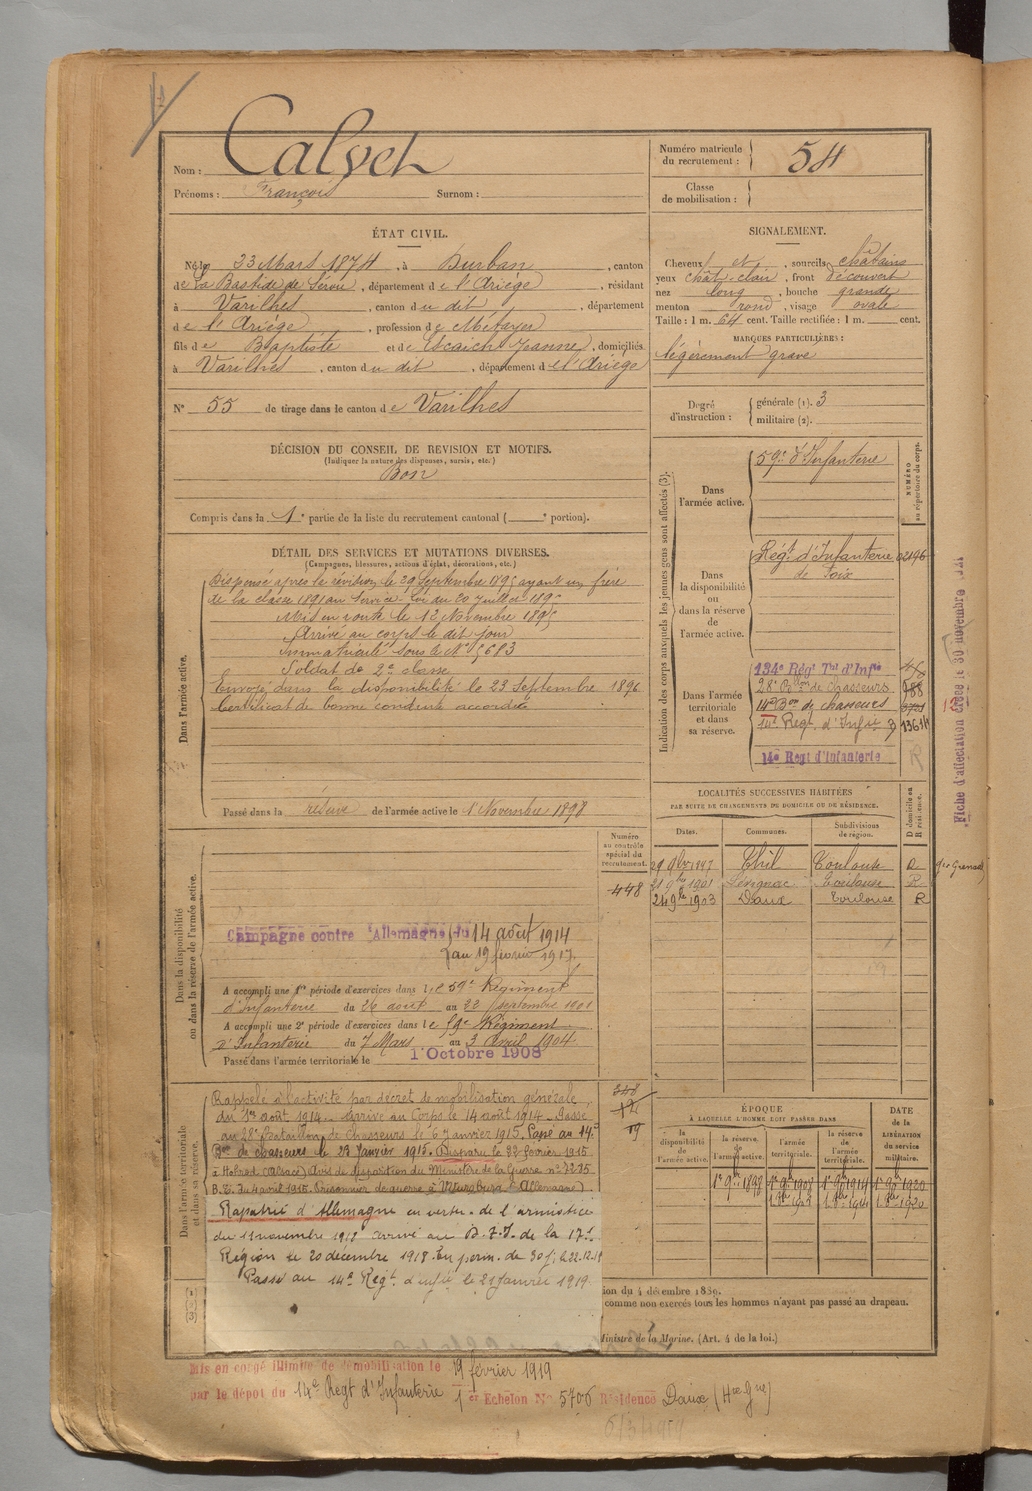 Nom : Calvet
Prénoms : François Surnom :
Numéro matricule
du recrutement : 54
Classe
de mobilisation :
ÉTAT CIVIL.
Né le 23 Mars 1874, à Durban, canton
de La Bastide de Sérou, département de l'Ariège, résidant
à Varilhes, canton du dit, département
de l'Ariège, profession de Métayer
fils de Baptiste et de Escaich Jeanne, domiciliés
à Varilhes, canton du dit, département de l'Ariège
N° 55 de tirage dans le canton de Varilhes
SIGNALEMENT.
Cheveux et, sourcils châtains
yeux chât. clair, front découvert
nez long, bouche grande
menton rond, visage ovale
Taille : 1 m. 64 cent. Taille rectifiée : 1 m. cent.
MARQUES PARTICULIÈRES :
légèrement gravé
Degré
d'instruction :
générale (1). 3
militaire (2).
DÉCISION DU CONSEIL DE REVISION ET MOTIFS.
(Indiquer la nature des dispenses, sursis, etc.)
Bon
Compris dans la 1e partie de la liste du recrutement cantonal ( e portion).
DÉTAIL DES SERVICES ET MUTATIONS DIVERSES.
(Campagnes, blessures, actions d'éclat, décorations, etc.)
Dans l'armée active.
Dispensé après la révision, le 29 Septembre 1895 ayant un frère
de la classe 1891 au Service. Loi du 20 Juillet 1895
Mis en route le 12 Novembre 1895
Arrivé au corps le dit jour
Immatriculé sous le N° 5683
Soldat de 2e classe
Envoyé dans la disponibilité le 23 Septembre 1896
Certificat de bonne conduite accordé
Passé dans la réserve de l'armée active le 1 Novembre 1898
Indication des corps auxquels les jeunes gens sont affectés (3).
NUMÉRO
au répertoire du corps.
Dans
l'armée active.
59e d'Infanterie
Dans
la disponibilité
ou
dans la réserve
de
l'armée active.
Régt d'Infanterie 02196
de Foix
Dans l'armée
territoriale
et dans
sa réserve.
134e Régt Tal d'Infie
28e Bllon de Chasseurs 988
14e Bon de chasseurs
14e Régt d'Infie
14e Régt d'Infanterie
Fiche d'affectation créée le 30 novembre
LOCALITÉS SUCCESSIVES HABITÉES
PAR SUITE DE CHANGEMENTS DE DOMICILE OU DE RÉSIDENCE.
Dates. Communes. Subdivisions
de région. D domicile ou
R résidence.
Thil Toulouse D
21 9bre 1901 Lévignac Toulouse R
24 9bre 1903 Daux Toulouse R
Numéro
au contrôle
spécial du
recrutement.
448
Dans la disponibilité
ou dans la réserve de l'armée active.
Campagne contre l'Allemagne du 14 août 1914
au 19 février 1917.
A accompli une 1re période d'exercices dans le 59e Régiment
d'Infanterie du 26 août au 22 septembre 1901
A accompli une 2e période d'exercices dans le 59e Régiment
d'Infanterie du 7 Mars au 3 Avril 1904
Passé dans l'armée territoriale le 1 Octobre 1908
Dans l'armée territoriale
et dans sa réserve.
Rappelé à l'activité par décret de mobilisation générale
du 1er août 1914. Arrivé au Corps le 14 août 1914. Passé
au 28e Bataillon de Chasseurs le 6 Janvier 1915. Passé au 14e
Bon de chasseurs le 23 janvier 1915. Disparu le 22 février 1915
à Holrod (Alsace) Avis de disparition du Ministre de la Guerre n° 7275
B. E. du 4 avril 1915. Prisonnier de guerre à Wursburg (Allemagne)
Rapatrié d'Allemagne en vertu de l'armistice
du 11 novembre 1918 arrivé au D.T.I. de la 17e
Région le 20 décembre 1918. En perm. de 30 j. le 22-12-18
Passé au 14e Régt d'infie le 21 janvier 1919.
ÉPOQUE
À LAQUELLE L'HOMME DOIT PASSER DANS
la
disponibilité
de
l'armée active.
la réserve
de
l'armée active.
l'armée
territoriale.
la réserve
de
l'armée
territoriale.
DATE
de la
LIBÉRATION
du service
militaire.
1er 9bre 1898 1er 9bre 1908 1er 9bre 1914 1er 9bre 1920
ion du 4 décembre 1889.
comme non exercés tous les hommes n'ayant pas passé au drapeau.
Ministre de la Marine. (Art. 4 de la loi.)
Mis en congé illimité de démobilisation le 19 février 1919
par le dépôt du 14e Régt d'Infanterie 1er Echelon N° 5706 Résidence Daux (Hte Gne)